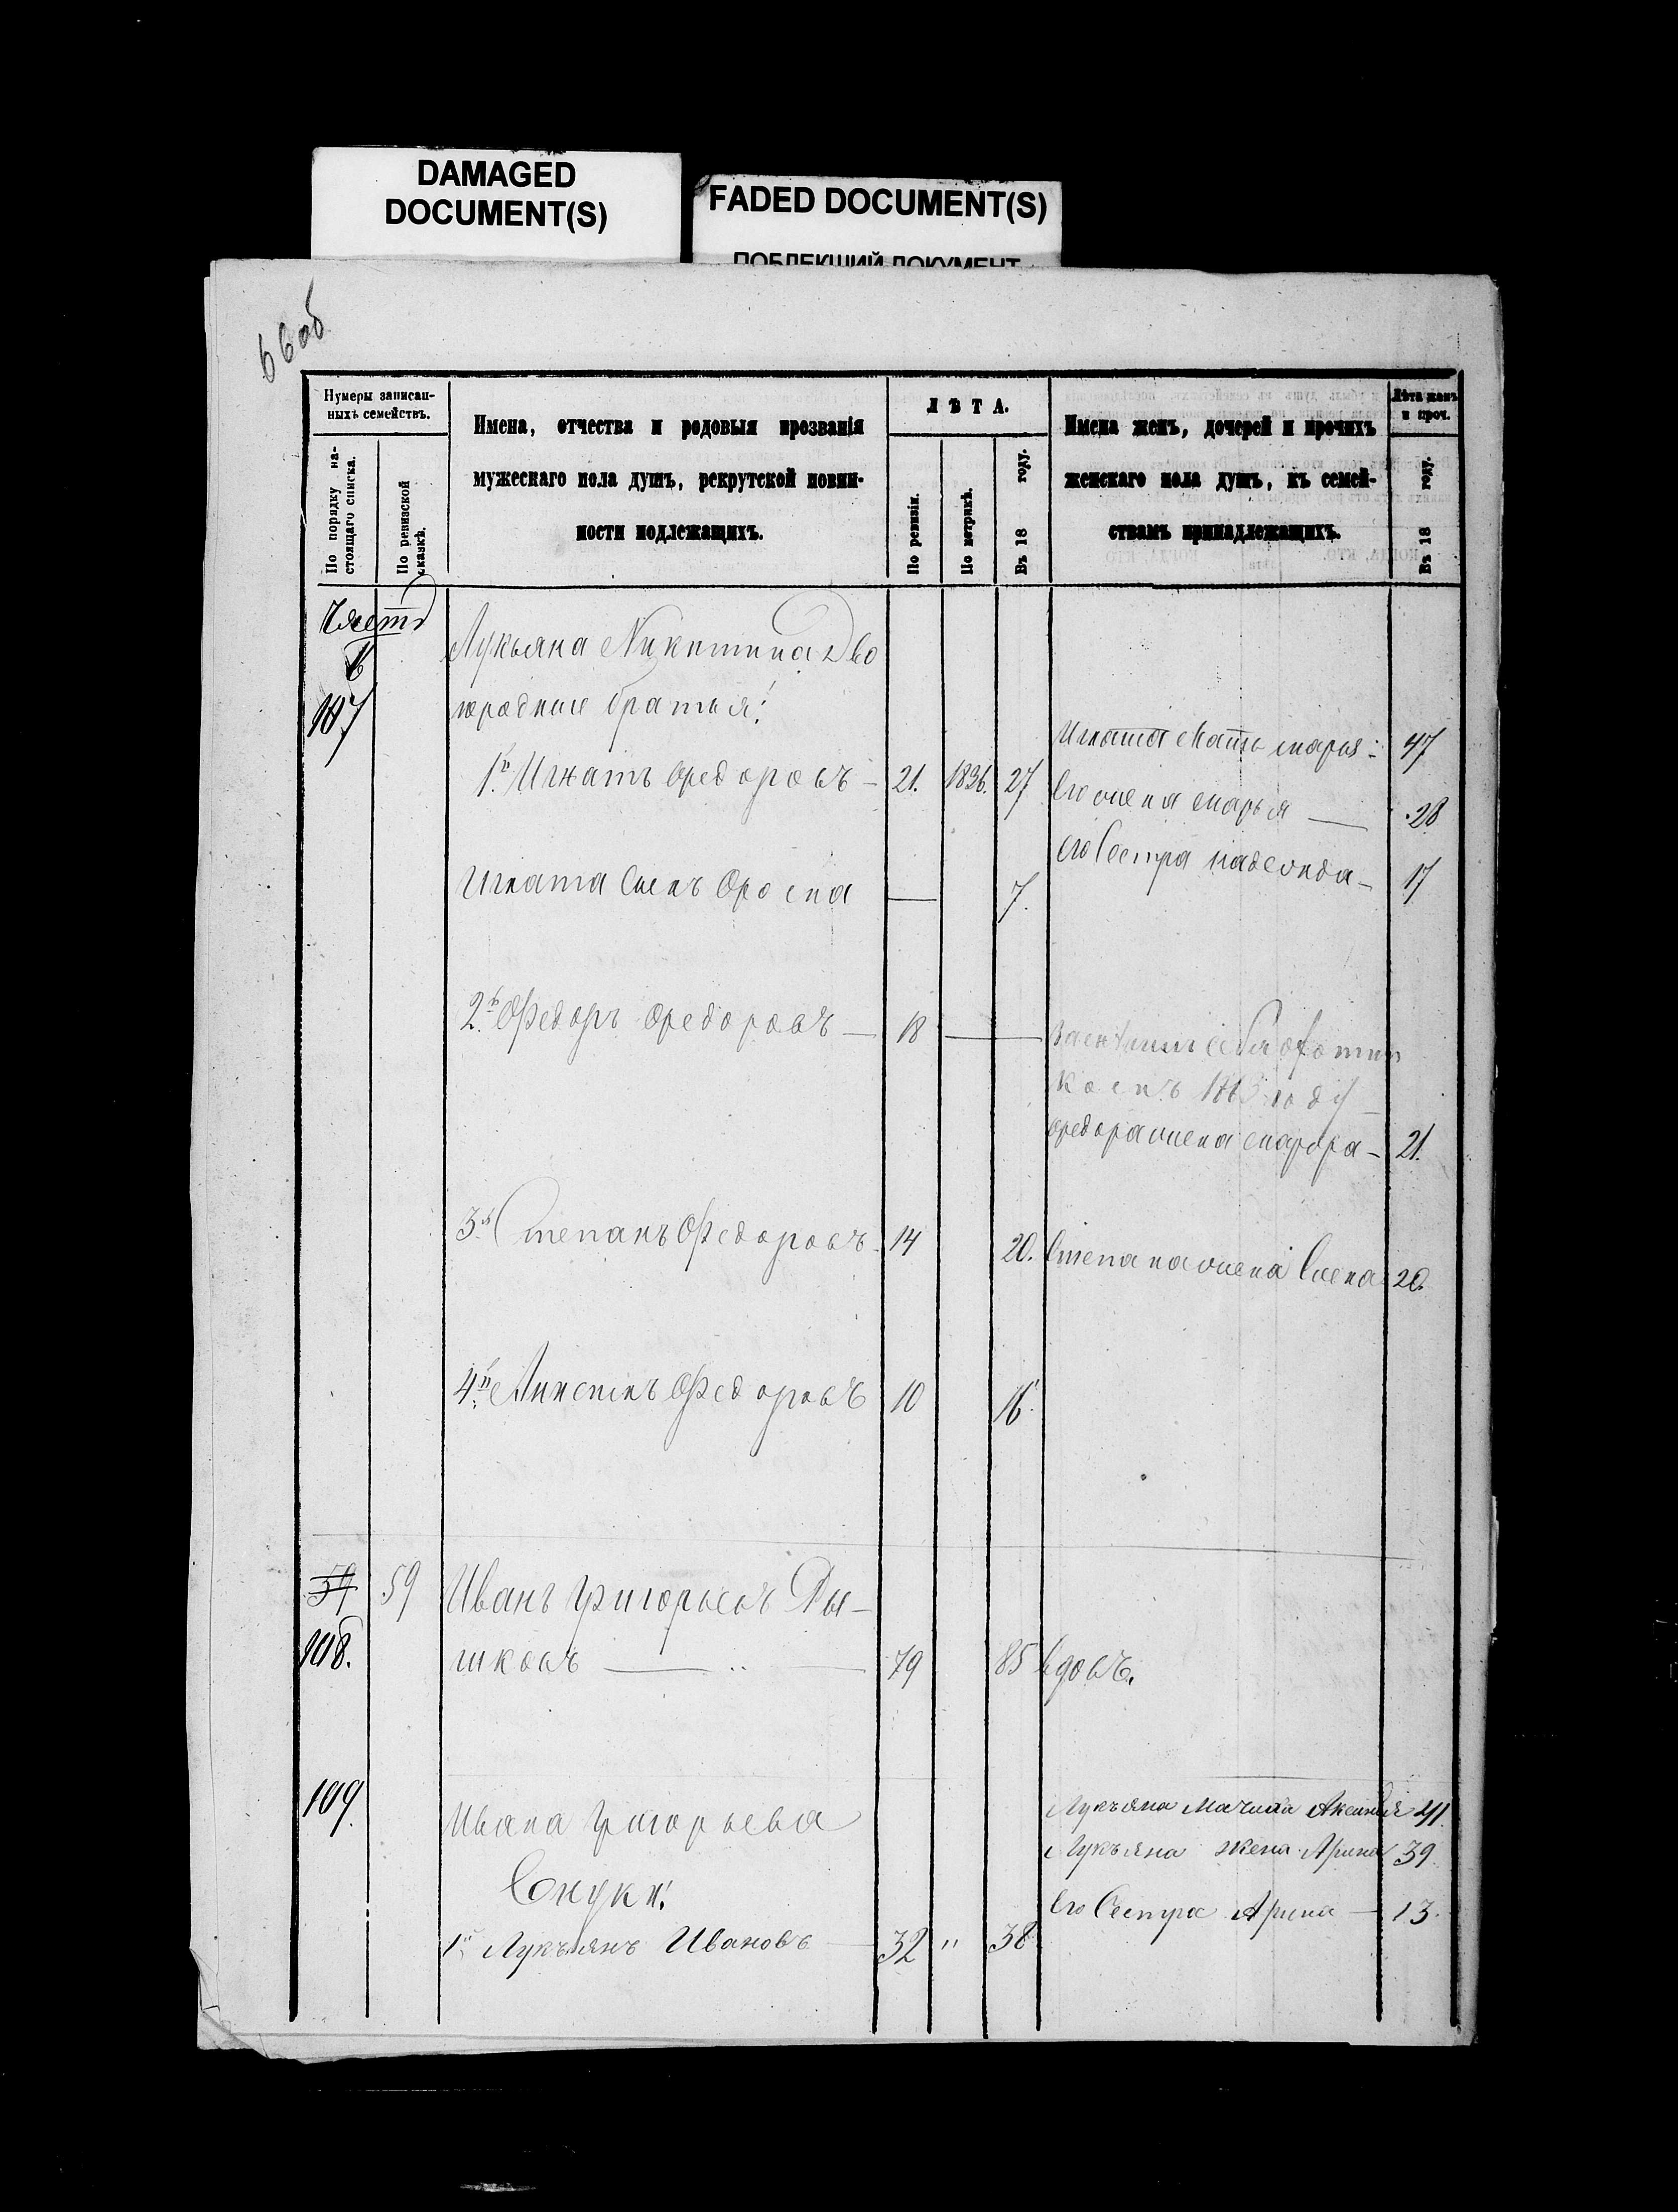 DAMAGED
DOCUMENT(S)
FADED DOCUMENT(S)
ПОБЛЕКШИЙ ДОКУМЕНТ
66об
Нумеры записан-
ныхъ семействъ.
По порядку на-
стоящаго списка.
По ревизской
сказкѣ.
Имена, отчества и родовыя прозванія
мужескаго пола душъ, рекрутской повин-
ности подлежащихъ.
ЛѢТА.
По ревизіи.
По метрикѣ.
Въ 18 году.
Имена женъ, дочерей и прочихъ
женскаго пола душъ, къ семей-
ствамъ принадлежащихъ.
Лѣта женъ
и проч.
Въ 18 году.
107
Лукьяна Никитина Дво
юродные братья:
Игната мать Марья 47
1й Игнатъ Федоровъ 21. 1836. 27
Его жена Марья 28
Его Сестра Надежда 17
Игната Сынъ 7.
2й Федоръ Федоровъ 18
1863 году
Федора жена 21.
3й Степанъ Федоровъ 14 20. Степана жена 20.
4й Федоровъ 10 16.
59 59 Иванъ Григорьевъ Ры-
108. шковъ 79 85 Вдовъ.
109. Ивана Григорьева
Внуки:
Лукъяна Мачиха Аксинья 41.
Лукъяна жена Арина 39.
Его Сестра Арина 13.
1й Лукъянъ Ивановъ 32 " 38